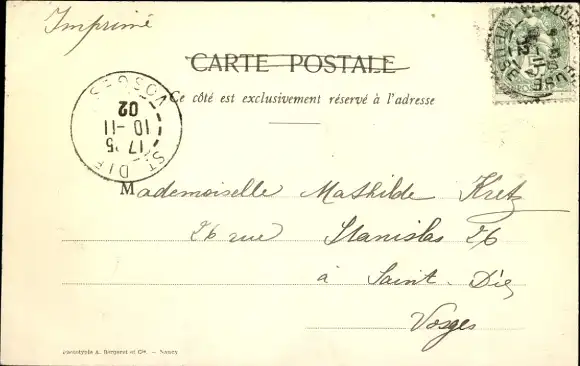 Imprimé
CARTE POSTALE
Ce côté est exclusivement réservé à l'adresse
VOSGES
02
10-11
ST DIE
02
Mademoiselle Mathilde Kretz
26 rue Stanislas 26
à Saint-Dié
Vosges
Phototypie A. Bergeret et Cie. — Nancy